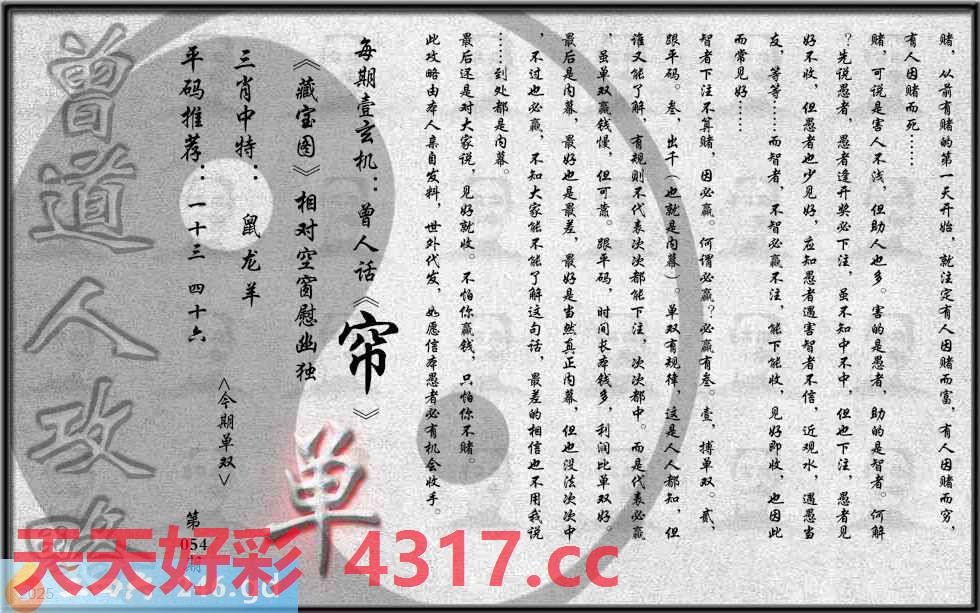 赌，从前有赌的第一天开始，就注定有人因赌而富，有人因赌而穷，
有人因赌而死……
赌，可说是害人不浅，但助人也多。害的是愚者，助的是智者。何解
？先说愚者，愚者逢开奖必下注，虽不知中不中，但也下注，愚者见
好不收，但愚者也少见好，应知愚者遇害智者不信，近观水，遇愚当
友，等等……而智者，不智必赢不注，能下能收，见好即收，也因此
而常见好……
智者下注不算赌，因必赢。何谓必赢？必赢有叁。壹，搏单双。贰，
跟平码。叁，出千（也就是内幕）。单双有规律，这是人人都知，但
谁又能了解，有规则不代表次次都能下注，次次都中。而是代表必赢
，虽单双赢钱慢，但可靠。跟平码，时间长本钱多，利润比单双好。
最后是内幕，最好也是最差，最好是当然真正内幕，但也没法次次中
，不过也必赢，不知大家能不能了解这句话，最差的相信也不用我说
……到处都是内幕。
最后还是对大家说，见好就收。不怕你赢钱，只怕你不赌。
此攻略由本人亲自发料，世外代发，如愿信本愚者必有机会收手。
每期壹玄机：曾人话《帘》
《藏宝图》相对空窗慰幽独
三肖中特：鼠龙羊
平码推荐：一十三 四十六
<今期单双>
单
第054期
曾道人攻略
天天好彩 4317.cc
2025
246.gd